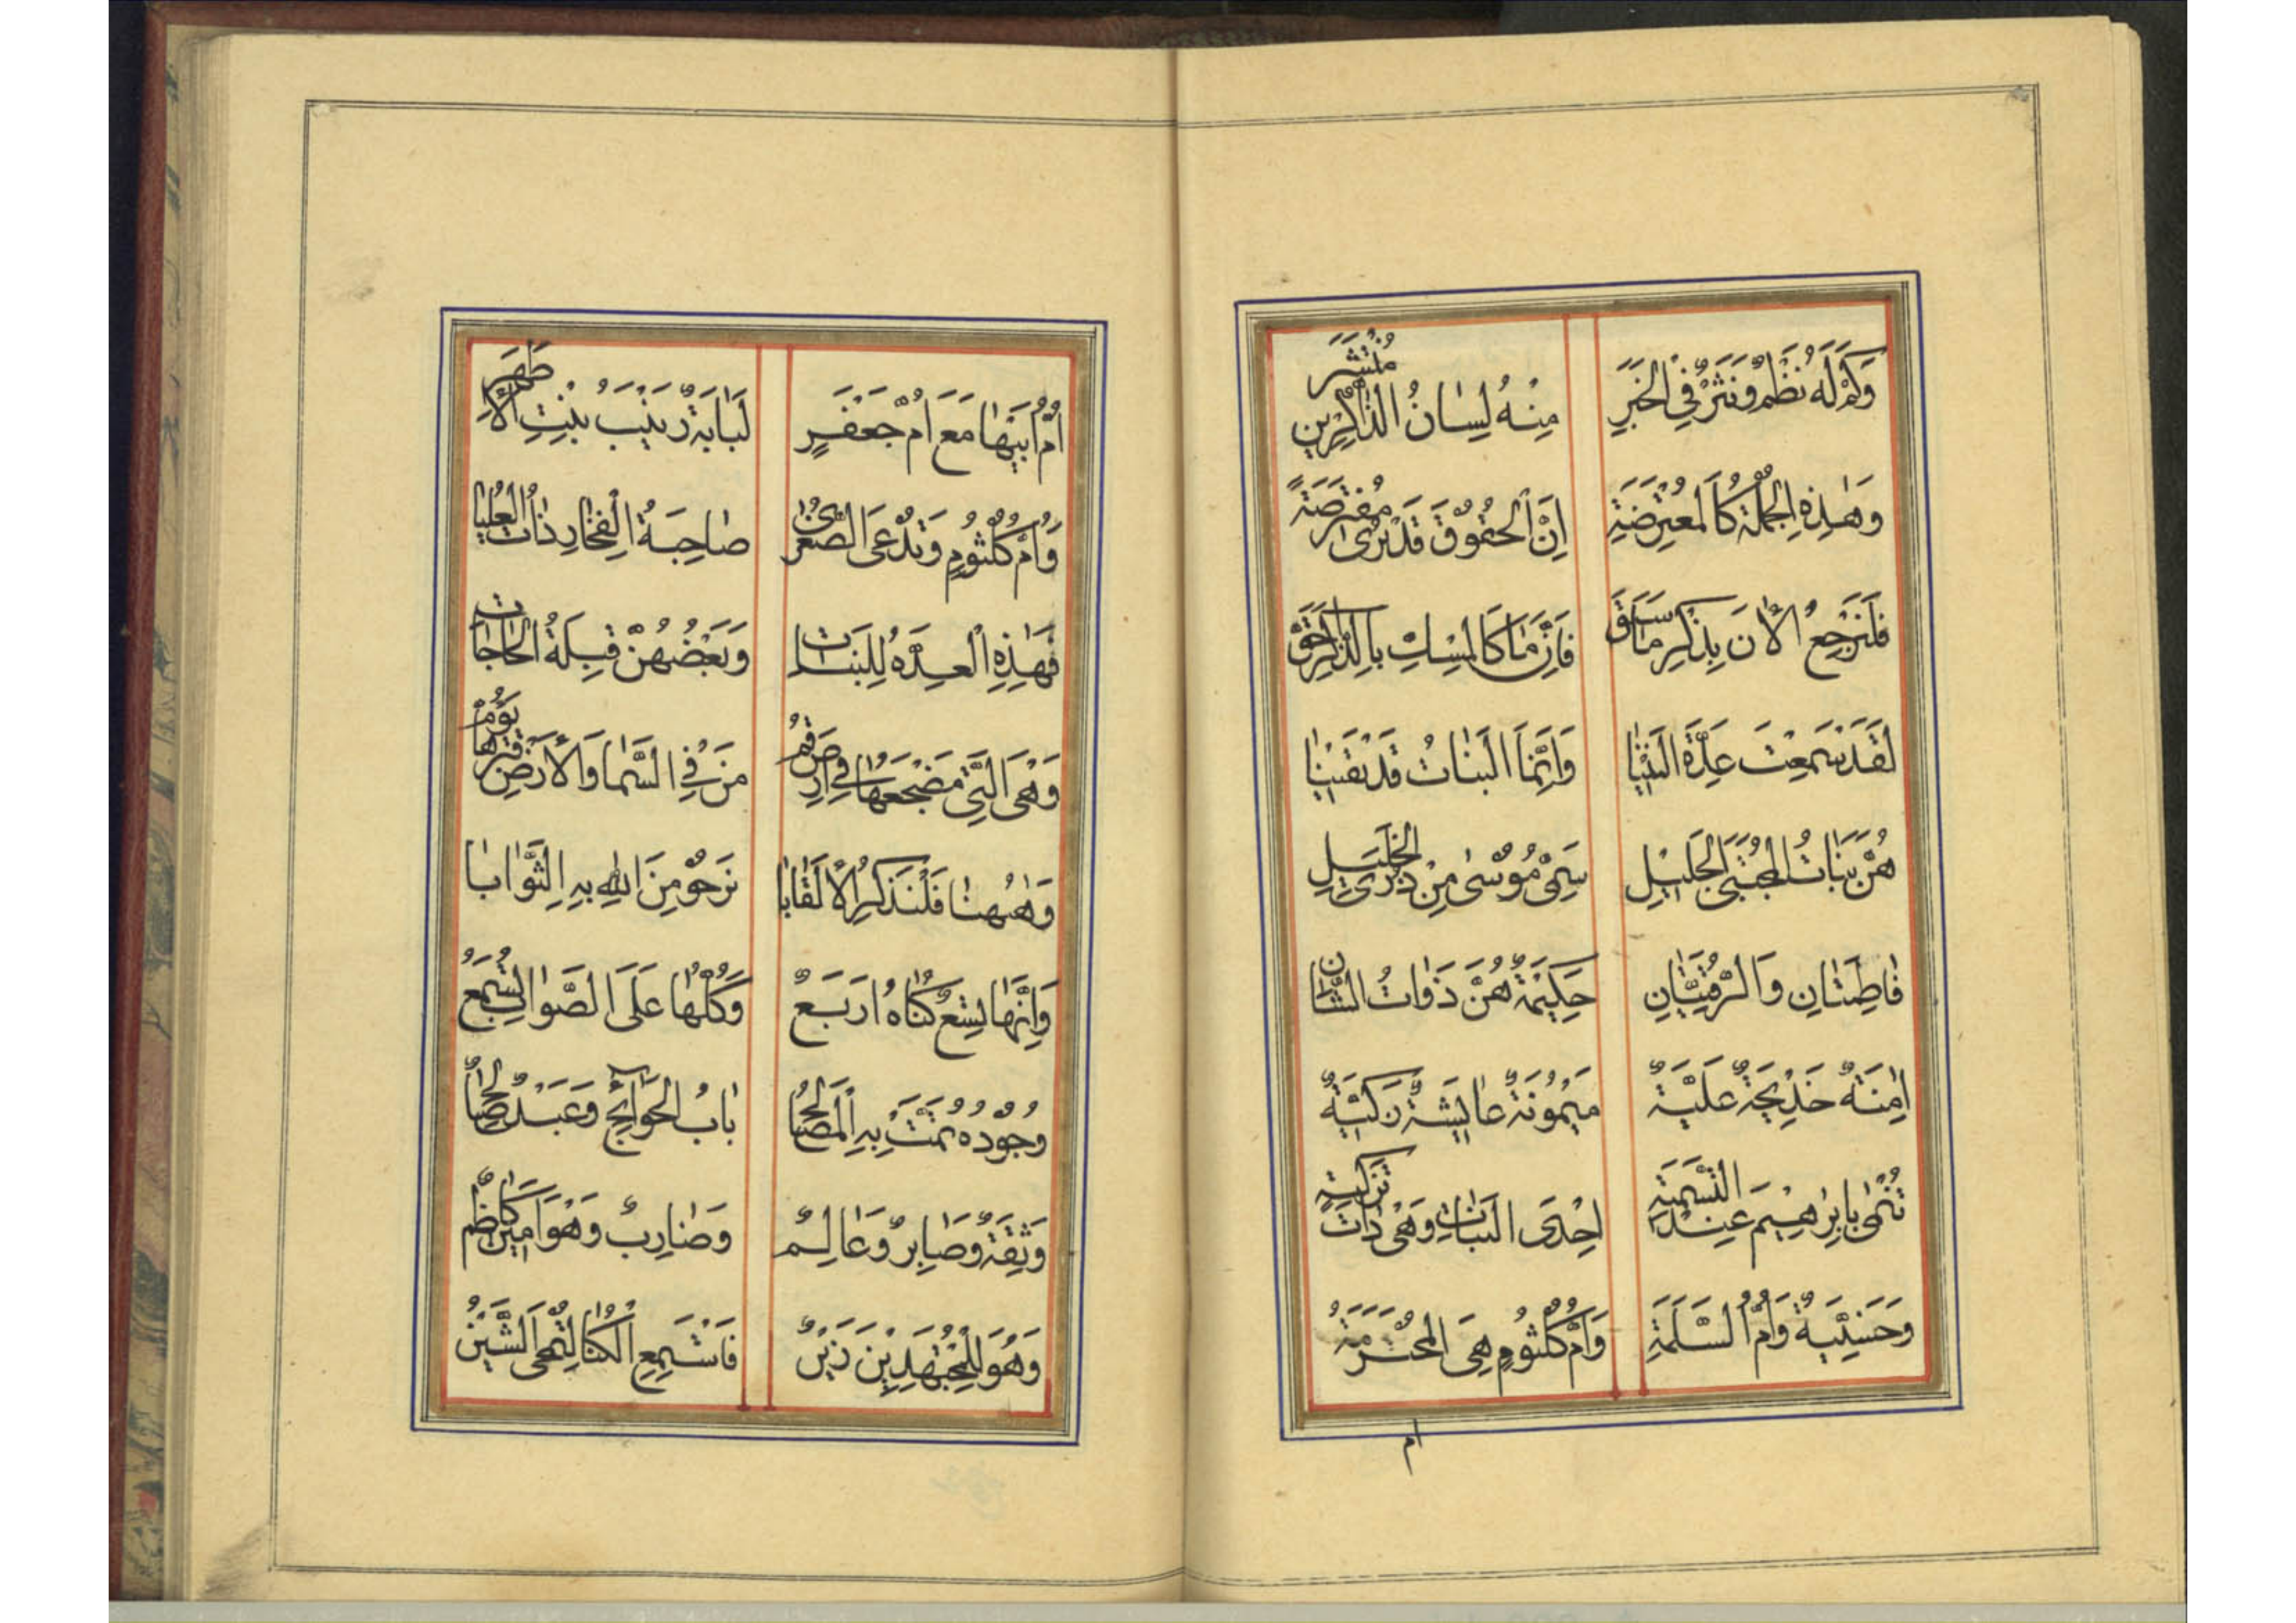 وَكَمْ لَهُ نَظْمٌ وَنَثْرٌ فِي الْخَبَرِ مِنْهُ لِسَانُ الذَّاكِرِينَ مُنْتَشَر
وَهٰذِهِ الْجُمْلَةُ كَالْمُعْتَرِضَةِ اِنَّ الْحُقُوقَ قَدْ تُرٰى مُفْتَرَضَةً
فَلْنَرْجِعُ الْاٰنَ بِذِكْرِ مَا سَبَقَ فَاِنَّمَا كَالْمِسْكِ بِالذِّكْرِ
لَقَدْ سَمِعْتَ عِدَّةَ الْبَنِيْنَا وَاِنَّمَا الْبَنَاتُ قَدْ بَقِيْنَا
هُنَّ بَنَاتُ الْمُجْتَبَى الْجَلِيْلِ سَمِيِّ مُوْسٰى مِنْ ذُرَى الْخَلِيْلِ
فَاطِمَتَانِ وَالرُّقِيَّتَانِ حَكِيْمَةٌ هُنَّ ذَوَاتُ الشَّانِ
اٰمِنَةٌ خَدِيْجَةٌ عَلِيَّةٌ مَيْمُوْنَةٌ عَايِشَةٌ زَكِيَّةٌ
تُنْمٰى بِاِبْرٰهِيْمَ عِنْدَ التَّسْمِيَةِ اِحْدَى الْبَنَاتِ وَهْيَ ذَاتُ تَزْكِيَةٍ
وَحَسَنِيَّةٌ وَاُمُّ السَّلَمَةِ وَاُمُّ كُلْثُومٍ هِيَ الْمُحْتَرَمَةُ
ام
اُمُّ اَبِيْهَا مَعَ اُمِّ جَعْفَرٍ لُبَابَةٌ زَيْنَبُ بِنْتِ الْاَطْهَرِ
وَاُمُّ كُلْثُومٍ وَتُدْعَى الصُّغْرٰى صَاحِبَةُ الْفِخَارِ ذَاتُ الْعُلْيَا
فَهٰذِهِ الْعِدَّةُ لِلْبَنَاتِ وَبَعْضُهُنَّ قِبْلَةُ الْحَاجَاتِ
وَهْيَ الَّتِي مَضْجَعُهَا فِي اَرْضِ قُمْ مَنْ فِي السَّمَا وَالْاَرْضِ قَبْرَهَا يَؤُمْ
وَهٰهُنَا فَلْنَذْكُرِ الْاَلْقَابَا نَرْجُو مِنَ اللهِ بِهِ الثَّوَابَا
وَاِنَّهَا تِسْعٌ كُنَاهُ اَرْبَعٌ وَكُلُّهَا عَلَى الصَّوَابِ تُسْمَعُ
وُجُوْدُهُ تَمَّتْ بِهِ الْمَصَالِحُ بَابُ الْحَوَائِجِ وَعَبْدٌ صَالِحٌ
وَثِقَةٌ وَصَابِرٌ وَعَالِمٌ وَضَارِبٌ وَهْوَ اَمِيْنٌ كَاظِمٌ
وَهُوَ لِلْمُجْتَهِدِيْنَ زَيْنٌ فَاسْتَمِعِ الْكُنَا لِتُمْحَى الشَّيْنُ